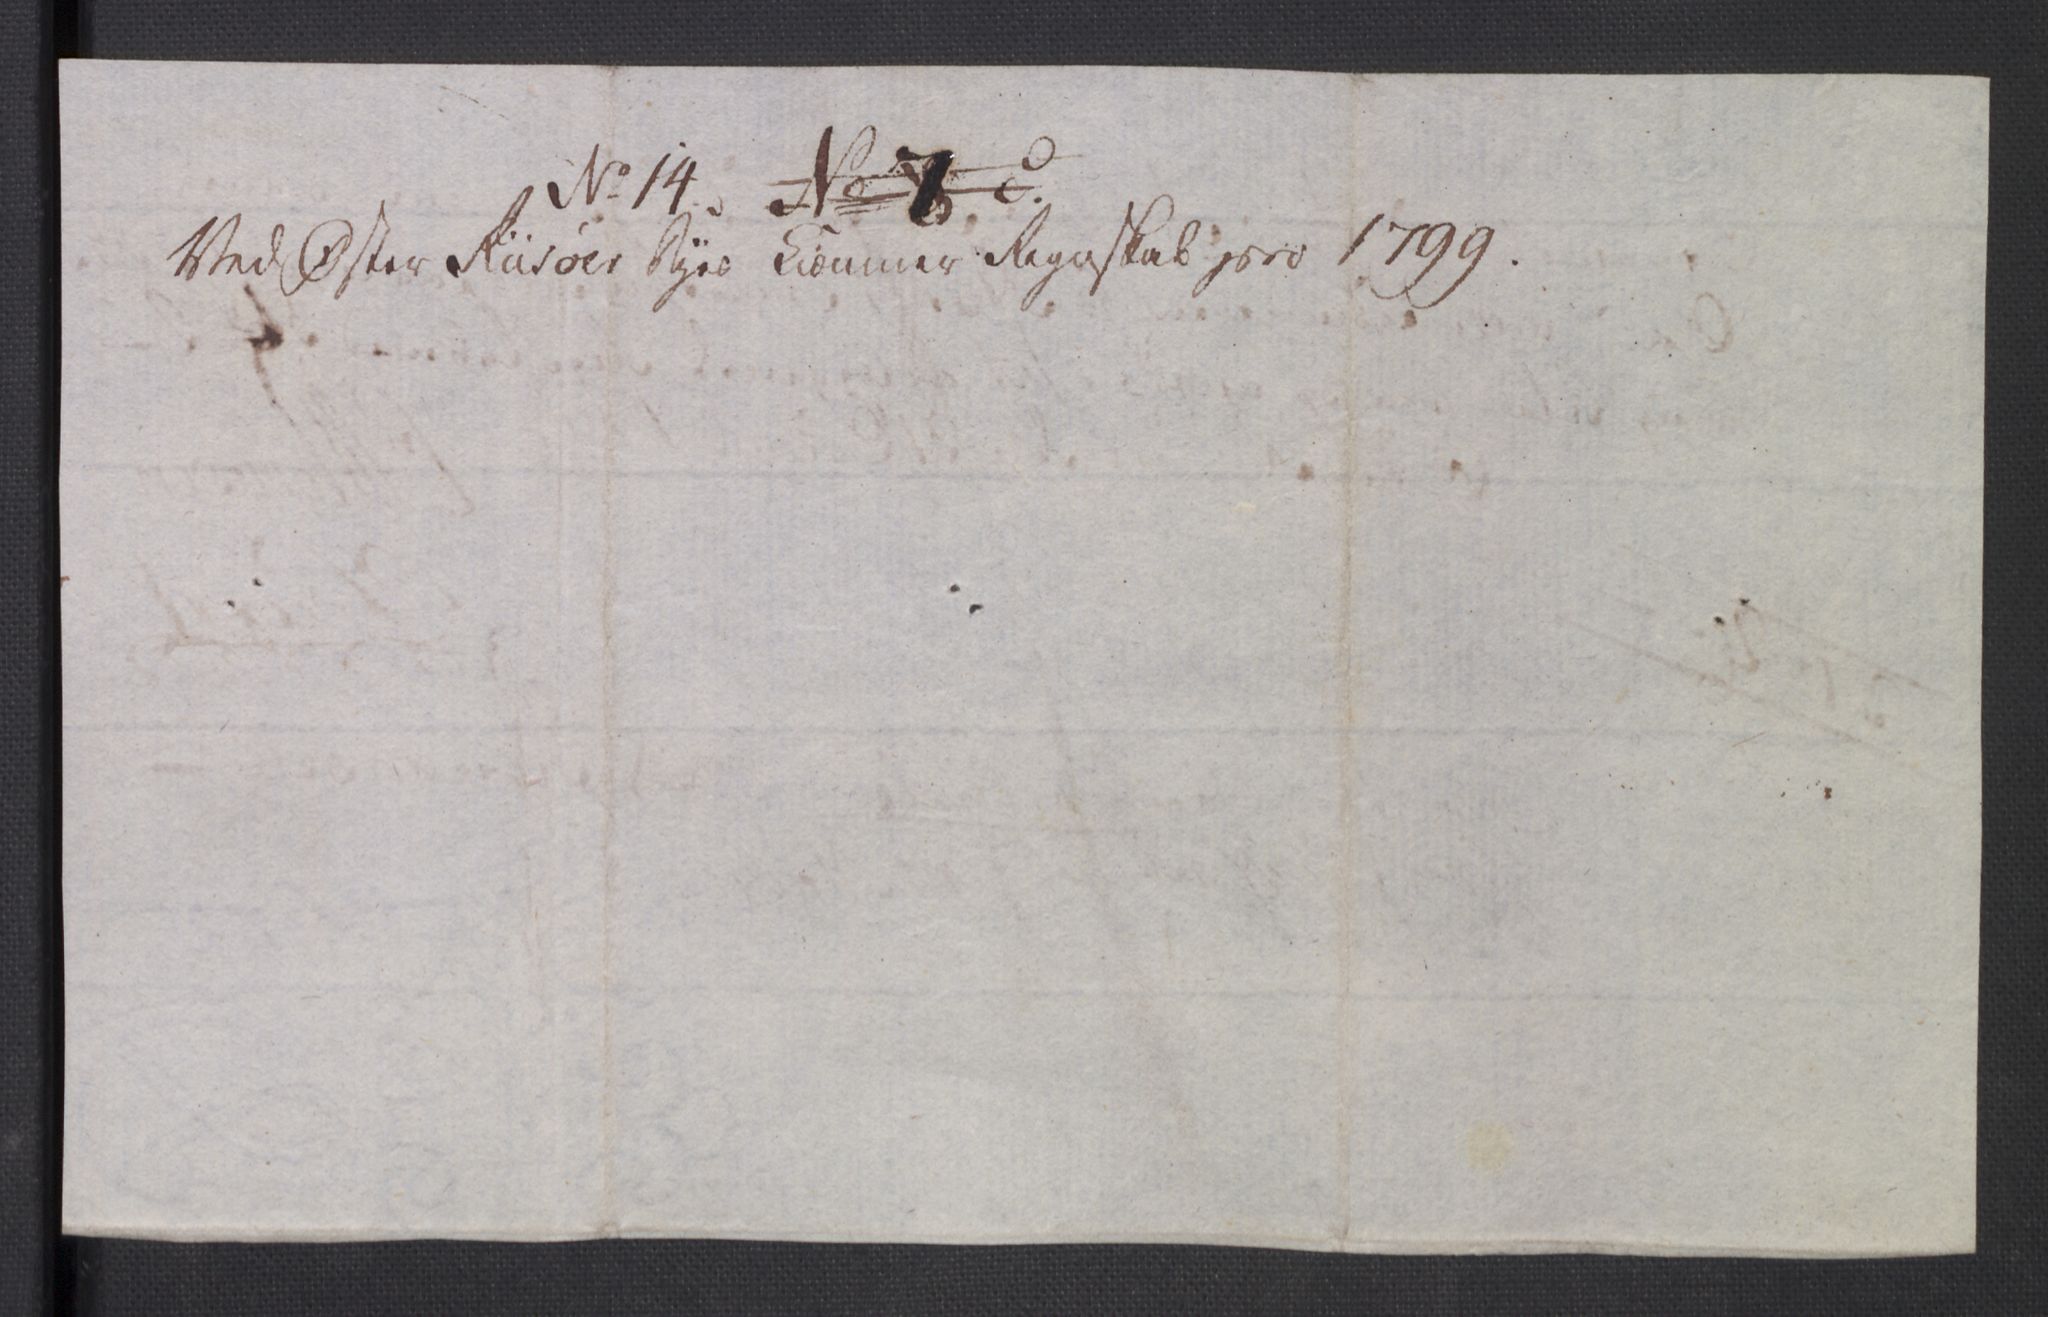 No 14. No 7 C.
Ved Øster Riisöer Byes Kiæmner Regnskab pro 1799.